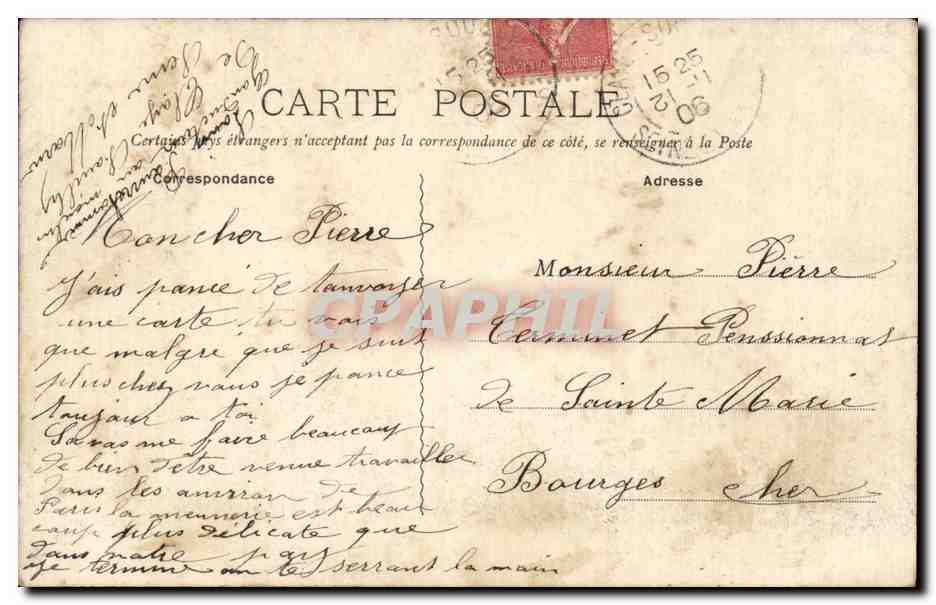 CARTE POSTALE
Certains pays étrangers n'acceptant pas la correspondance de ce côté, se renseigner à la Poste
Correspondance
Adresse
Mon cher Pierre
J'ais pancé de tanvoiyer
une carte tu vois
que malgre que je suis
plus chez vous je pance
toujour a toi
Sa vas me faire beaucoup
de bien d'etre venue travailler
dans les anviron de
Paris la meunerie est beau
coup plus délicate que
dans notre pays
Je termine an te serrant la main
Louis
au moulin
de Claye Souilly
Seine et Marne
Monsieur Pierre
Terminet Penssionnat
de Sainte Marie
Bourges cher
15 25
21-11
06
CPAPHIL